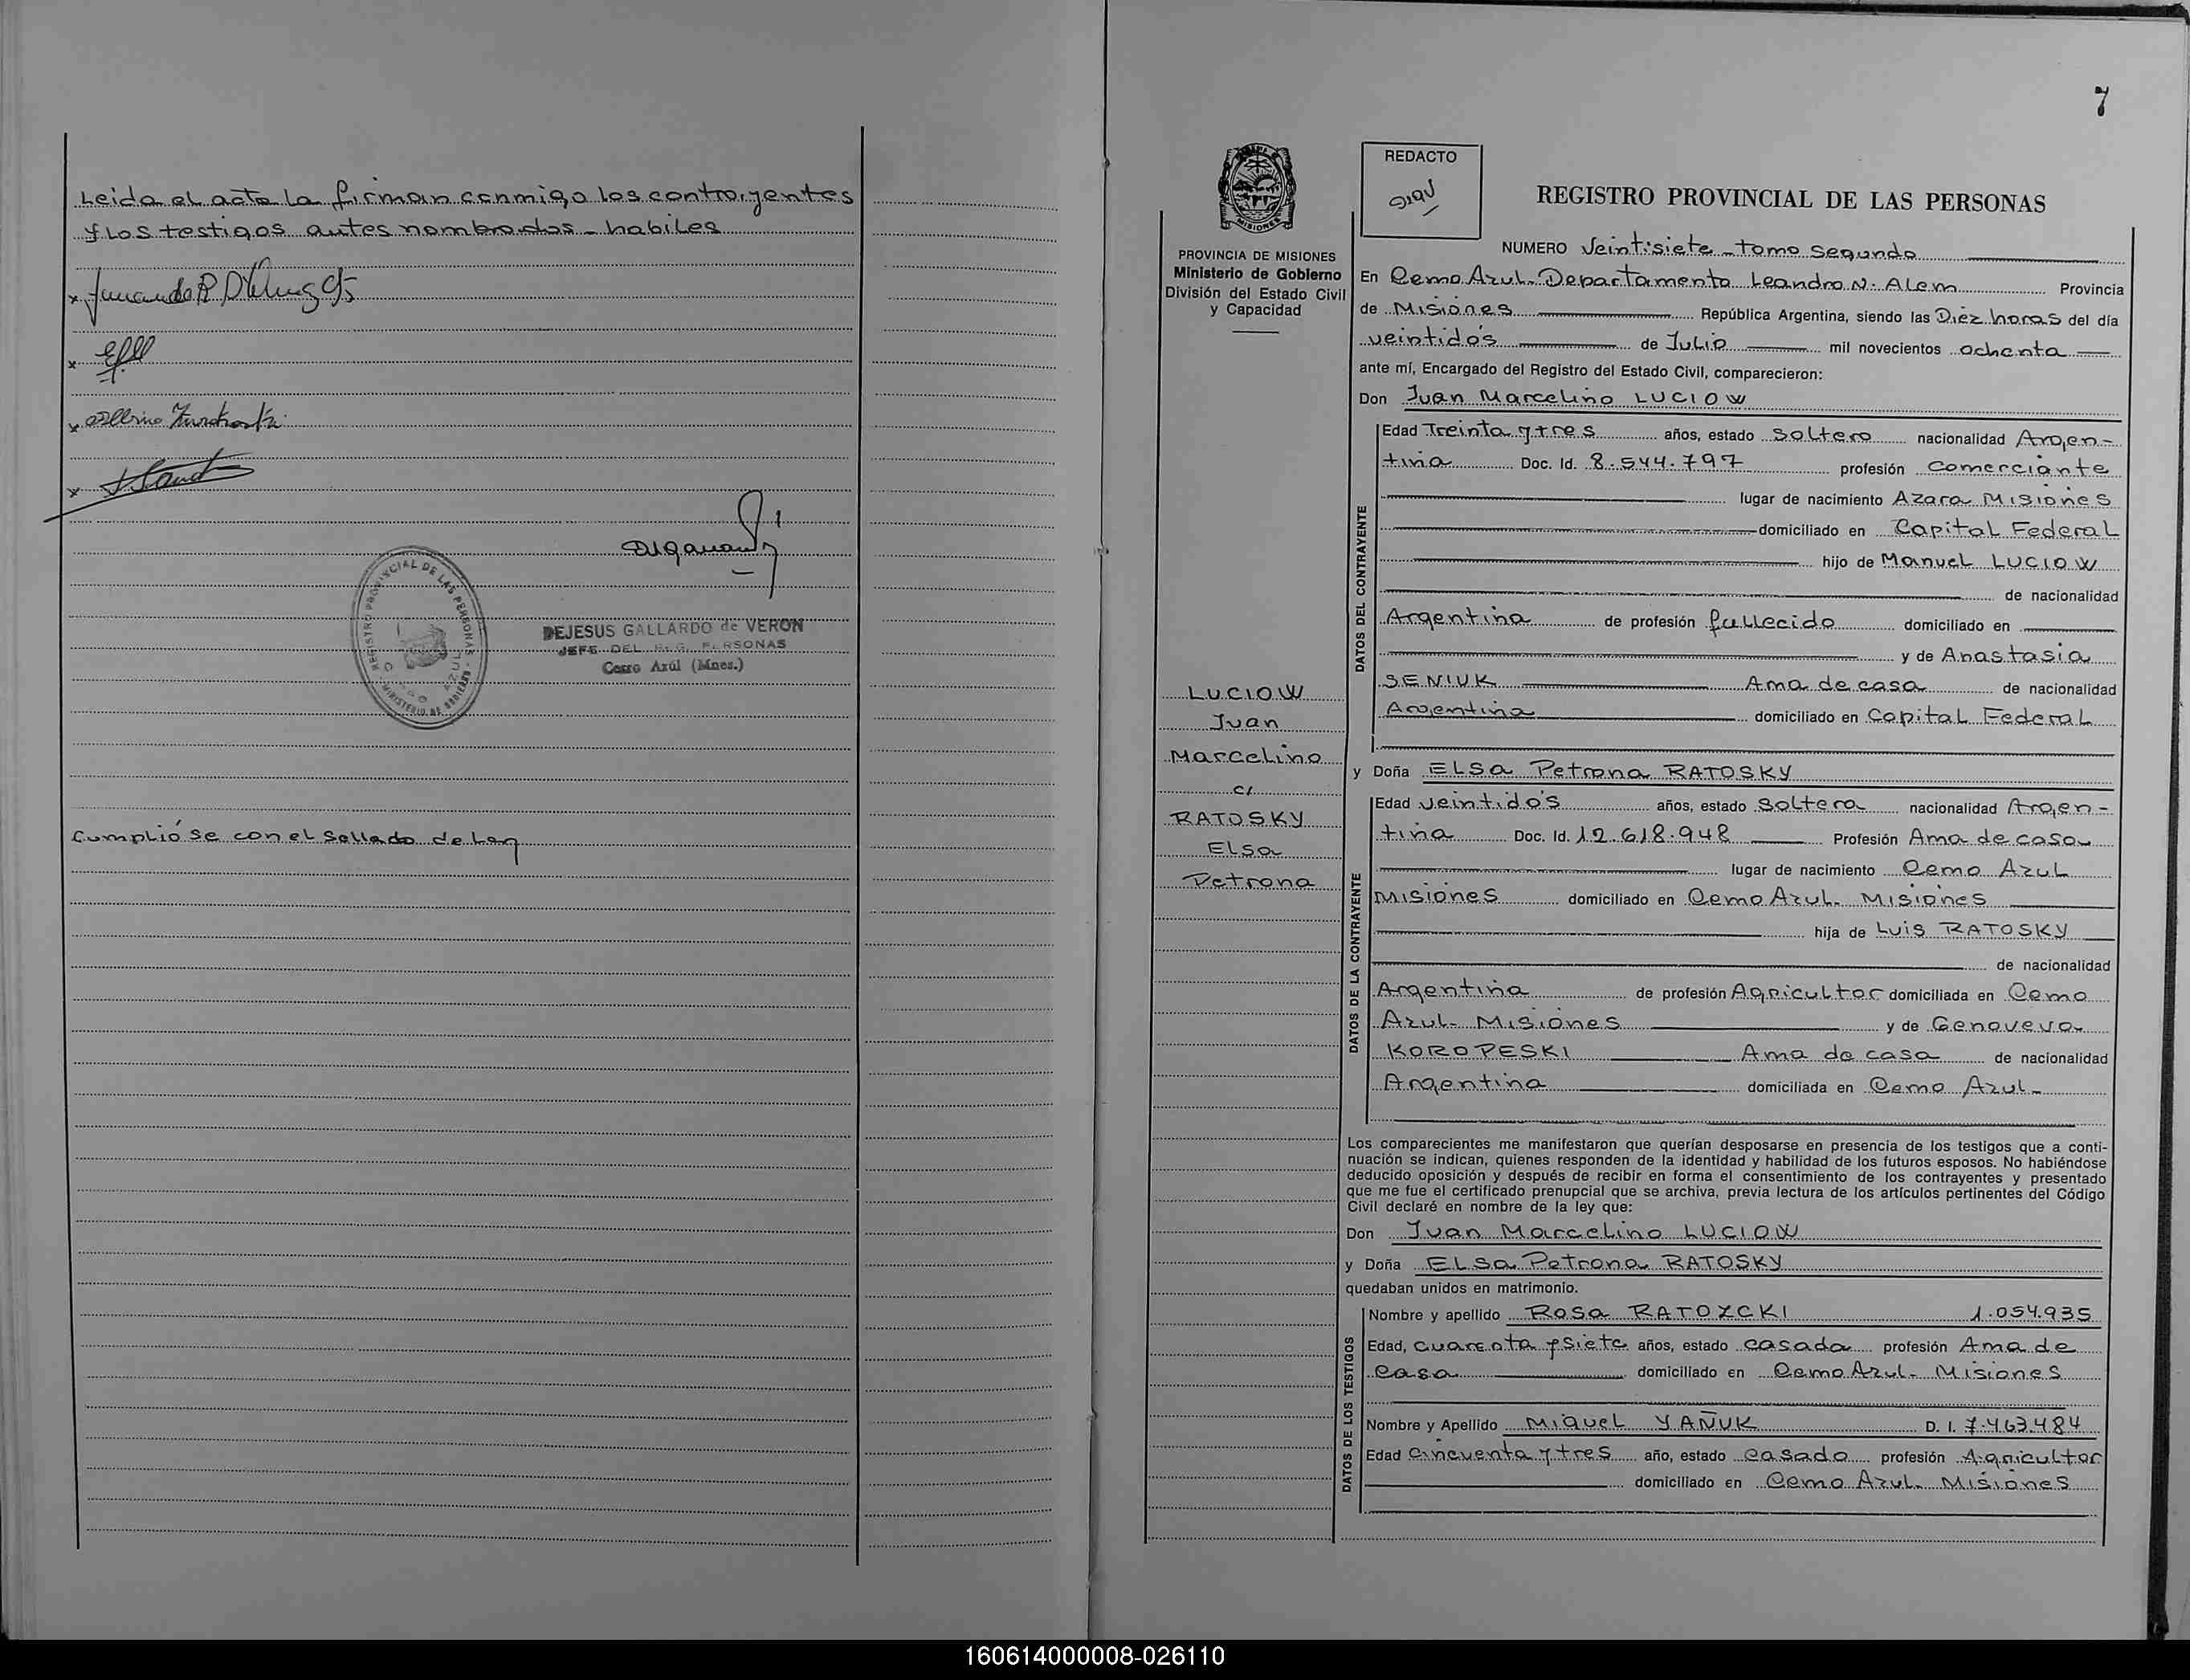 Leida el acta la firman conmigo los contrayentes
y los testigos antes nombrados - habiles
x
x
x
x
REGISTRO PROVINCIAL DE LAS PERSONAS
MINISTERIO DE GOBIERNO
DEJESUS GALLARDO de VERON
JEFE DEL REG. PERSONAS
Cerro Azúl (Mnes.)
Cumplióse con el Sellado de Ley
7
REDACTO
MISIONES
PROVINCIA DE MISIONES
Ministerio de Gobierno
División del Estado Civil
y Capacidad
LUCIOW
Juan
Marcelino
c/
RATOSKY
Elsa
Petrona
REGISTRO PROVINCIAL DE LAS PERSONAS
NUMERO Veintisiete - tomo segundo
En Cerro Azul - Departamento Leandro N. Alem Provincia
de Misiones República Argentina, siendo las Diez horas del día
veintidós de Julio mil novecientos ochenta
ante mí, Encargado del Registro del Estado Civil, comparecieron:
Don Juan Marcelino LUCIOW
DATOS DEL CONTRAYENTE
Edad Treinta y tres años, estado Soltero nacionalidad Argen-
tina Doc. Id. 8.544.797 profesión comerciante
lugar de nacimiento Azara Misiones
domiciliado en Capital Federal
hijo de Manuel LUCIOW
de nacionalidad
Argentina de profesión fallecido domiciliado en
y de Anastasia
SENIUK Ama de casa de nacionalidad
Argentina domiciliado en Capital Federal
y Doña Elsa Petrona RATOSKY
DATOS DE LA CONTRAYENTE
Edad veintidós años, estado Soltera nacionalidad Argen-
tina Doc. Id. 12.618.948 Profesión Ama de casa
lugar de nacimiento Cerro Azul
Misiones domiciliado en Cerro Azul - Misiones
hija de Luis RATOSKY
de nacionalidad
Argentina de profesión Agricultor domiciliada en Cerro
Azul - Misiones y de Genoveva
KOROPESKI Ama de casa de nacionalidad
Argentina domiciliada en Cerro Azul -
Los comparecientes me manifestaron que querían desposarse en presencia de los testigos que a conti-
nuación se indican, quienes responden de la identidad y habilidad de los futuros esposos. No habiéndose
deducido oposición y después de recibir en forma el consentimiento de los contrayentes y presentado
que me fue el certificado prenupcial que se archiva, previa lectura de los artículos pertinentes del Código
Civil declaré en nombre de la ley que:
Don Juan Marcelino LUCIOW
y Doña Elsa Petrona RATOSKY
quedaban unidos en matrimonio.
DATOS DE LOS TESTIGOS
Nombre y apellido Rosa RATOZCKI 1.054.935
Edad, cuarenta y siete años, estado casada profesión Ama de
Casa domiciliado en Cerro Azul - Misiones
Nombre y Apellido Miguel YAÑUK D. I. 7.463.484
Edad Cincuenta y tres año, estado Casado profesión Agricultor
domiciliado en Cerro Azul - Misiones
160614000008-026110